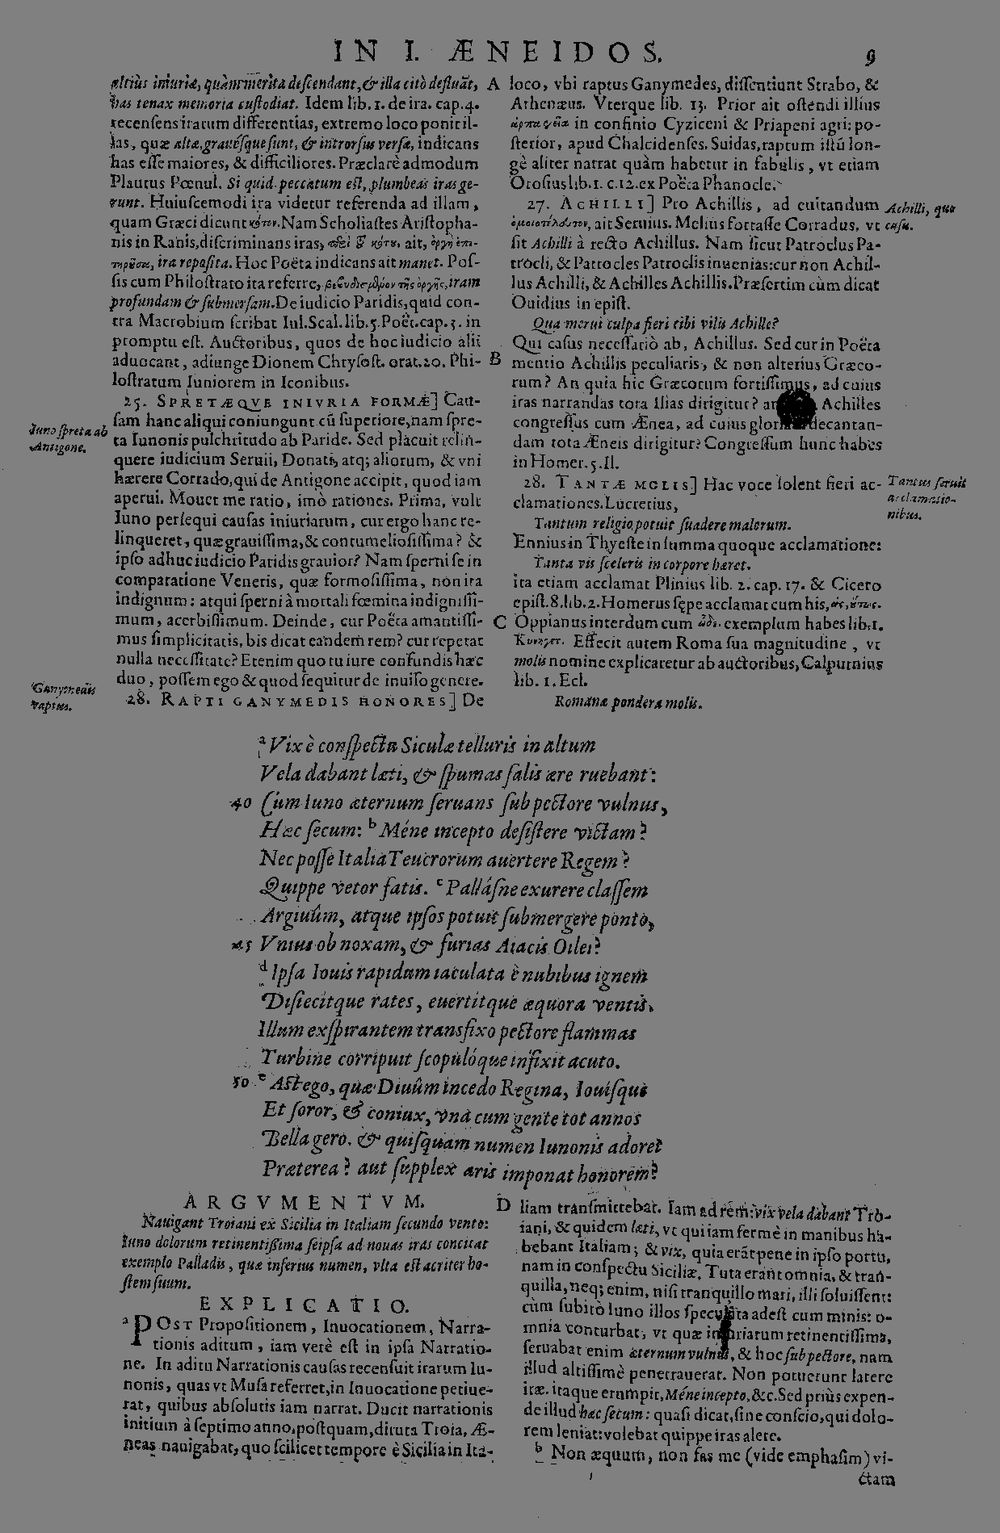 IN I. ÆNEIDOS. 9
altiùs iniuriæ, quàm merita descendant, & illa citò defluāt,
has tenax memoria custodiat. Idem lib. 1. de ira. cap. 4.
recensens iratum differentias, extremo loco ponit il-
las, quæ altæ, gravésque sunt, & introrsus versæ, indicans
has esse maiores, & difficiliores. Præclarè admodum
Plautus Pœnul. Si quid peccatum est, plumbeas iras ge-
runt. Huiuscemodi ira videtur referenda ad illam,
quam Græci dicunt κότον. Nam Scholiastes Aristopha-
nis in Ranis, discriminans iras, ait,
ira reposita. Hoc Poëta indicans ait manet. Pos-
sis cum Philostrato ita referre, iram
profundam & submersam. De iudicio Paridis, quid con-
tra Macrobium scribat Iul. Scal. lib. 5. Poët. cap. 3. in
promptu est. Auctoribus, quos de hoc iudicio alii
aduocant, adiunge Dionem Chrysost. orat. 20. Phi-
lostratum Iuniorem in Iconibus.
25. SPRETÆQVE INIVRIA FORMÆ] Cau-
sam hanc aliqui coniungunt cū superiore, nam spre-
ta Iunonis pulchritudo ab Paride. Sed placuit relin-
quere iudicium Seruii, Donati, atq; aliorum, & vni
hærere Corrado, qui de Antigone accipit, quod iam
aperui. Mouet me ratio, imò rationes. Prima, vult
Iuno persequi causas iniuriarum, cur ergo hanc re-
linqueret, quæ grauissima, & contumeliosissima? &
ipso adhuc iudicio Paridis grauior? Nam sperni se in
comparatione Veneris, quæ formosissima, non ita
indignum: atqui sperni à mortali fœmina indignissi-
mum, acerbissimum. Deinde, cur Poëta amantissi-
mus simplicitatis, bis dicat eandem rem? cur repetat
nulla necessitate? Etenim quo tu iure confundis hæc
duo, possem ego & quod sequitur de inuiso genere.
28. RAPTI GANYMEDIS HONORES] De
Iuno spreta ab
Antigone.
Ganymedis
raptus.
A loco, vbi raptus Ganymedes, dissentiunt Strabo, &
Athenæus. Vterque lib. 13. Prior ait ostendi illius
in confinio Cyziceni & Priapeni agri: po-
sterior, apud Chalcidenses. Suidas, raptum illū lon-
gè aliter narrat quàm habetur in fabulis, vt etiam
Orosius lib. 1. c. 12. ex Poëta Phanocle.
27. ACHILLI] Pro Achillis, ad euitandum
ait Seruius. Melius fortasse Corradus, vt
sit Achilli à recto Achillus. Nam sicut Patroclus Pa-
trocli, & Patrocles Patroclis inuenias: cur non Achil-
lus Achilli, & Achilles Achillis. Præsertim cùm dicat
Ouidius in epist.
Qua merui culpa fieri tibi vilis Achille?
Qui casus necessariò ab, Achillus. Sed cur in Poëta
B mentio Achillis peculiaris, & non alterius Græco-
rum? An quia hic Græcorum fortissimus, ad cuius
iras narrandas tota Ilias dirigitur? Achilles
congressus cum Ænea, ad cuius gloriam decantan-
dam tota Æneis dirigitur? Congressum hunc habes
in Homer. 5. Il.
28. TANTÆ MOLIS] Hac voce solent fieri ac-
clamationes. Lucretius,
Tantum religio potuit suadere malorum.
Ennius in Thyeste in summa quoque acclamatione:
Tanta vis sceleris in corpore hæret.
ita etiam acclamat Plinius lib. 2. cap. 17. & Cicero
epist. 8. lib. 2. Homerus sępe acclamat cum his, ὡς, οὕτως.
C Oppianus interdum cum ὧδε. exemplum habes lib. 1.
Κυνηγετ. Effecit autem Roma sua magnitudine, vt
molis nomine explicaretur ab auctoribus, Calpurnius
lib. 1. Ecl.
Romanæ pondera molis.
Achilli, quo
casu.
Tantus seruit
acclamatio-
nibus.
a Vix è conspectu Siculæ telluris in altum
Vela dabant læti, & spumas salis ære ruebant:
40 Cùm Iuno æternum seruans sub pectore vulnus,
Hæc secum: b Méne incepto desistere victam?
Nec posse Italiâ Teucrorum auertere Regem?
Quippe vetor fatis. c Pallásne exurere classem
Argiuûm, atque ipsos potuit submergere ponto,
45 Vnius ob noxam, & furias Aiacis Oilei?
d Ipsa Iouis rapidum iaculata è nubibus ignem
Disiecitque rates, euertitque æquora ventis.
Illum exspirantem transfixo pectore flammas
Turbine corripuit scopulóque infixit acuto.
50 e Ast ego, quæ Diuûm incedo Regina, Iouisque
Et soror, & coniux, vnâ cum gente tot annos
Bella gero. & quisquam numen Iunonis adoret
Præterea? aut supplex aris imponat honorem?
ARGVMENTVM.
Nauigant Troiani ex Sicilia in Italiam secundo vento:
Iuno dolorum retinentissima seipsa ad nouas iras concitat
exemplo Palladis, quæ inferius numen, vlta est acriter ho-
stem suum.
EXPLICATIO.
a POST Propositionem, Inuocationem, Narra-
tionis aditum, iam verè est in ipsa Narratio-
ne. In aditu Narrationis causas recensuit irarum Iu-
nonis, quas vt Musa referret, in Inuocatione petiue-
rat, quibus absolutis iam narrat. Ducit narrationis
initium à septimo anno, postquam, diruta Troia, Æ-
neas nauigabat, quo scilicet tempore è Sicilia in Ita-
D liam transmittebat. Iam ad rem: vix vela dabant Tro-
iani, & quidem læti, vt qui iam fermè in manibus ha-
bebant Italiam; & vix, quia erāt pene in ipso portu,
nam in conspectu Siciliæ, Tuta erant omnia, & tran-
quilla, neq; enim, nisi tranquillo mari, illi soluissent:
cùm subitò Iuno illos speculata adest cum minis: o-
mnia conturbat, vt quæ iniuriarum retinentissima,
seruabat enim æternum vulnus, & hoc sub pectore, nam
illud altissimè penetrauerat. Non potuerunt latere
iræ. itaque erumpit, Méne incepto, &c. Sed priùs expen-
de illud hæc secum: quasi dicat, sine conscio, qui dolo-
rem leniat: volebat quippe iras alere.
b Non æquum, non fas me (vide emphasim) vi-
ctam